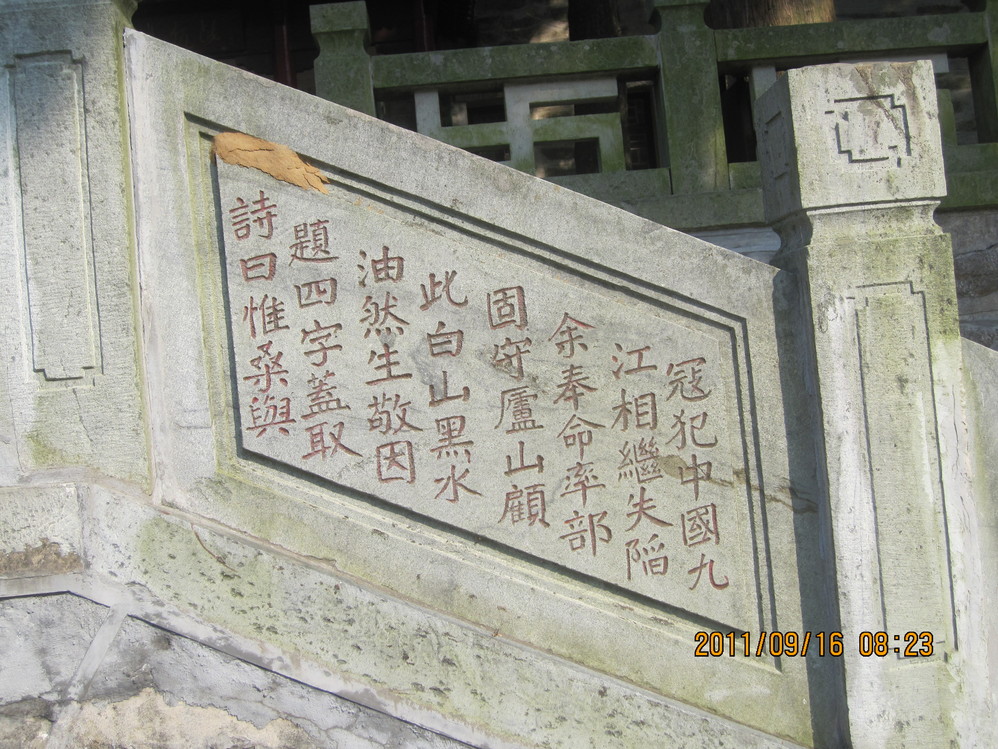 冦犯中國九
江相繼失陷
余奉命率部
固守廬山顧
此白山黑水
油然生敬因
題四字蓋取
詩曰惟桑與
2011/09/16 08:23